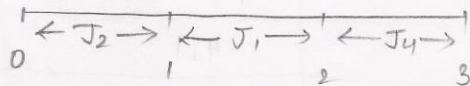 ← J2 → ← J1 → ← J4 →
0 1 2 3